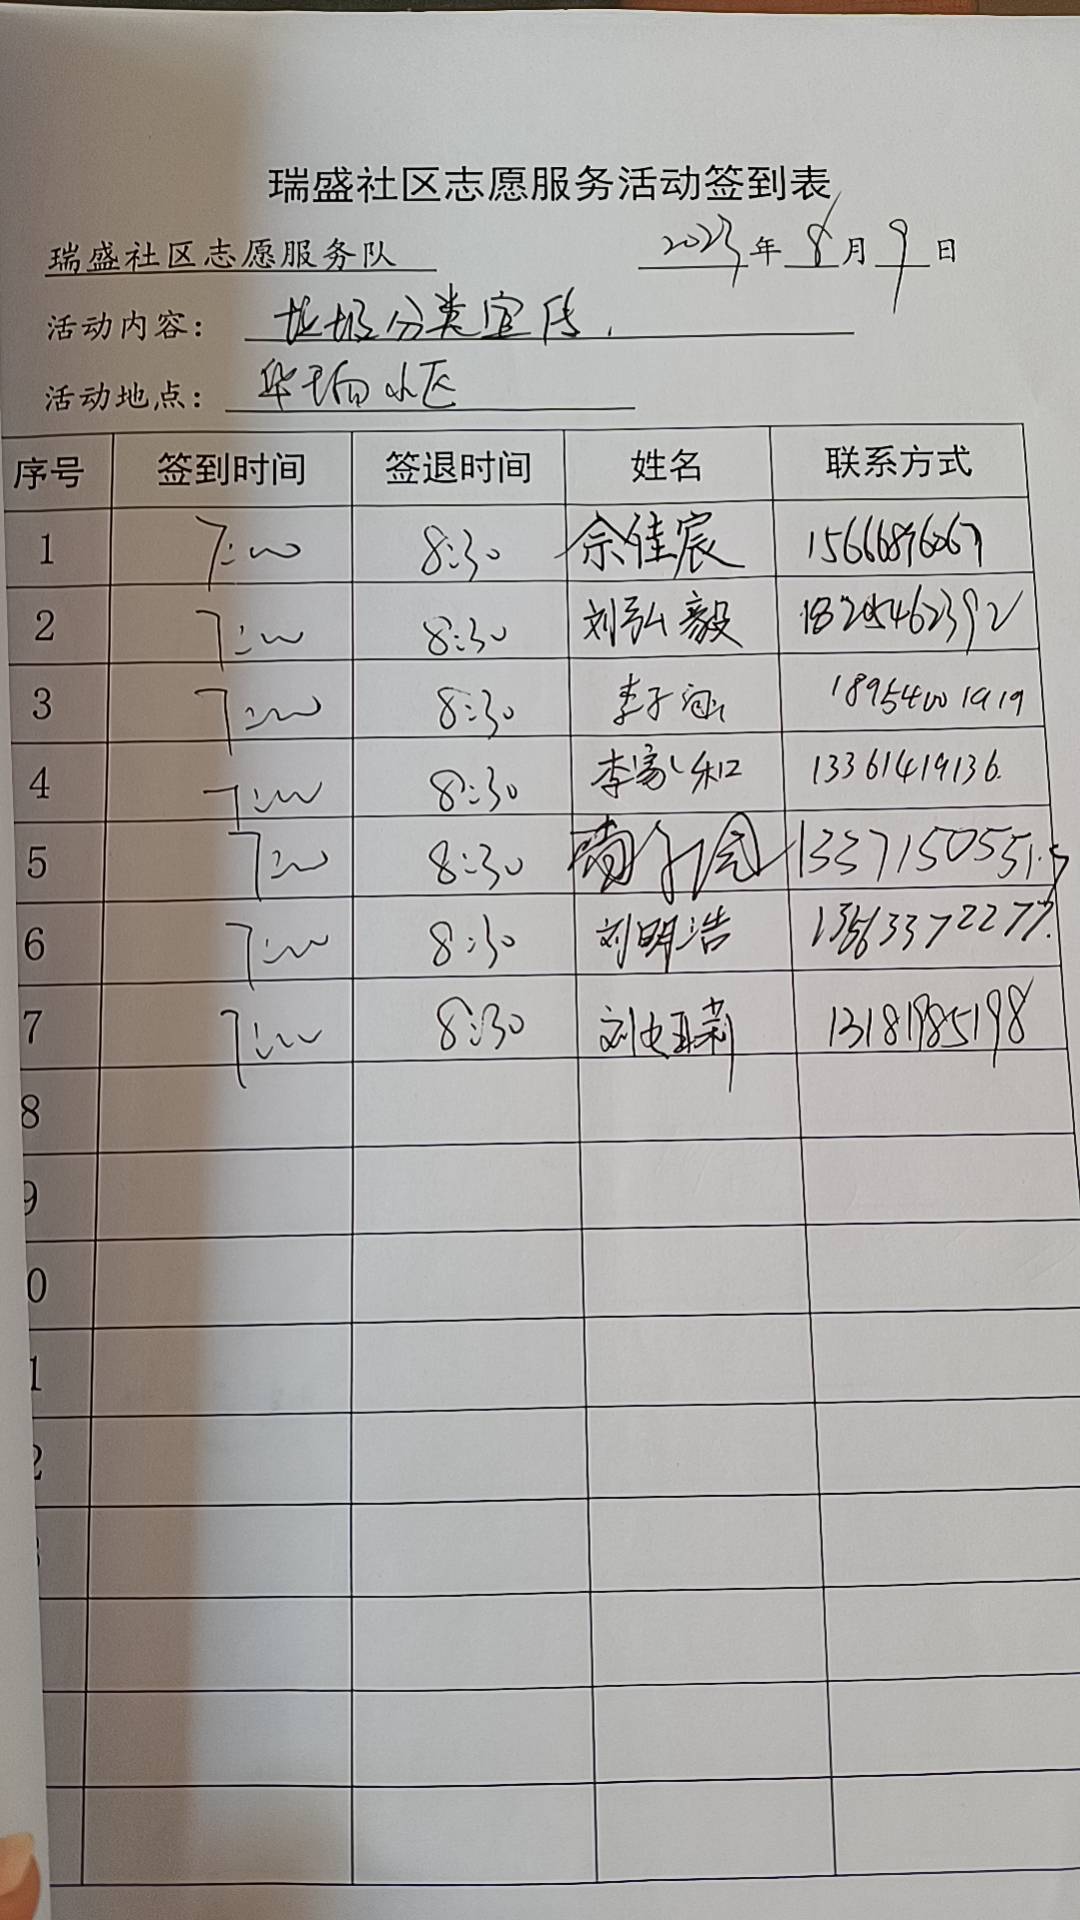 瑞盛社区志愿服务活动签到表
瑞盛社区志愿服务队 2023年8月9日
活动内容： 垃圾分类宣传.
活动地点： 小区
序号 签到时间 签退时间 姓名 联系方式
1 7:00 8:30 佳宸 15666896067
2 7:00 8:30 刘弘毅
3 7:00 8:30 李子涵 18954001919
4 7:00 8:30 李家和 13361419136.
5 7:00 8:30
6 7:00 8:30 刘明浩
7 7:00 8:30 13181985198
8
9
0
1
2